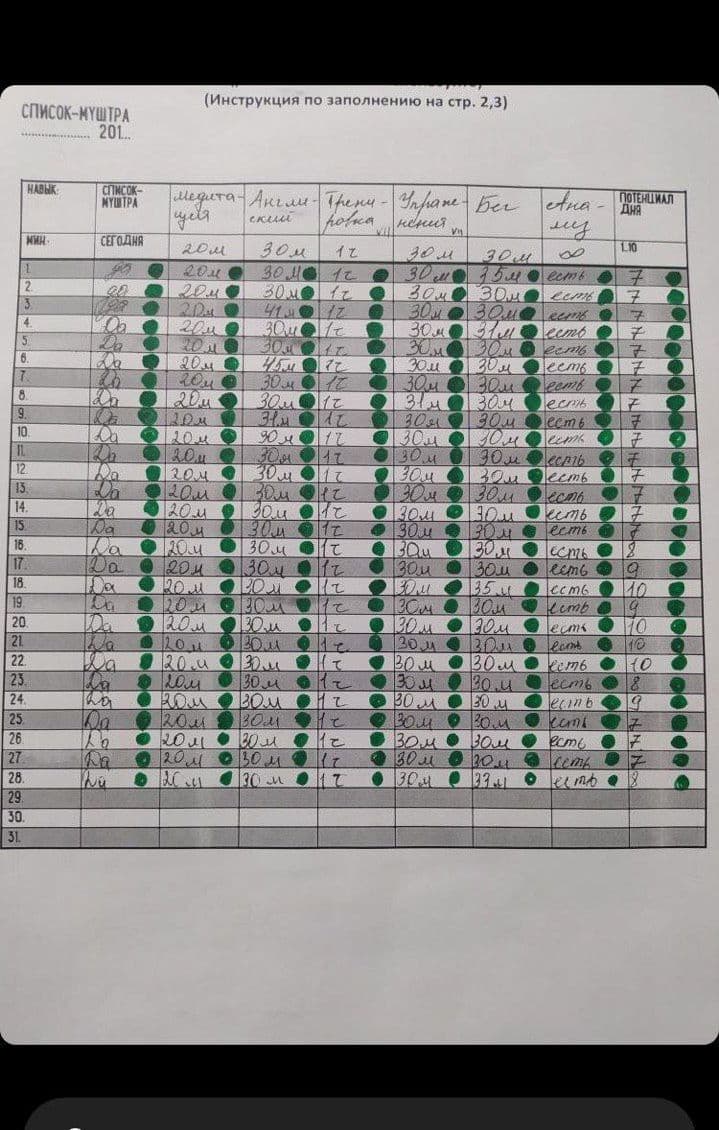 (Инструкция по заполнению на стр. 2,3)
СПИСОК-МУШТРА
.................... 201...
НАВЫК: СПИСОК-МУШТРА Медитация Английский Тренировка VII Упражнения VII Бег Анализ ПОТЕНЦИАЛ ДНЯ
МИН: СЕГОДНЯ 20м 30м 1ч 30м 30м ∞ 1..10
1. да 20м 30м 1ч 30м есть 7
2. да 20м 30м 1ч 30м 30м есть 7
3. 20м 41м 1ч 30м 30м есть 7
4. Да 20м 30м 1ч 30м 31м есть 7
5. Да 20м 30м 1ч 30м 30м есть 7
6. Да 20м 45м 1ч 30м 30м есть 7
7. Да 20м 30м 1ч 30м 30м есть 7
8. Да 20м 30м 1ч 31м 30м есть 7
9. Да 20м 31м 1ч 30м 30м есть 7
10. Да 20м 30м 1ч 30м 30м есть 7
11. Да 20м 30м 1ч 30м 30м есть 7
12. Да 20м 30м 1ч 30м 30м есть 7
13. Да 20м 30м 1ч 30м 30м есть 7
14. Да 20м 30м 1ч 30м 30м есть 7
15. Да 20м 30м 1ч 30м 30м есть 7
16. Да 20м 30м 1ч 30м 30м есть 8
17. Да 20м 30м 1ч 30м 30м есть 9
18. Да 20м 30м 1ч 30м 35м есть 10
19. Да 20м 30м 1ч 30м 30м есть 9
20. Да 20м 30м 1ч 30м 30м есть 10
21. Да 20м 30м 1ч 30м 30м есть 10
22. Да 20м 30м 1ч 30м 30м есть 10
23. Да 20м 30м 1ч 30м 30м есть 8
24. Да 20м 30м 1ч 30м 30м есть 9
25. Да 20м 30м 1ч 30м 30м есть 7
26 Да 20м 30м 1ч 30м 30м есть 7
27. Да 20м 30м 1ч 30м 30м есть 7
28. Да 20м 30м 1ч 30м 33м есть 8
29.
30.
31.